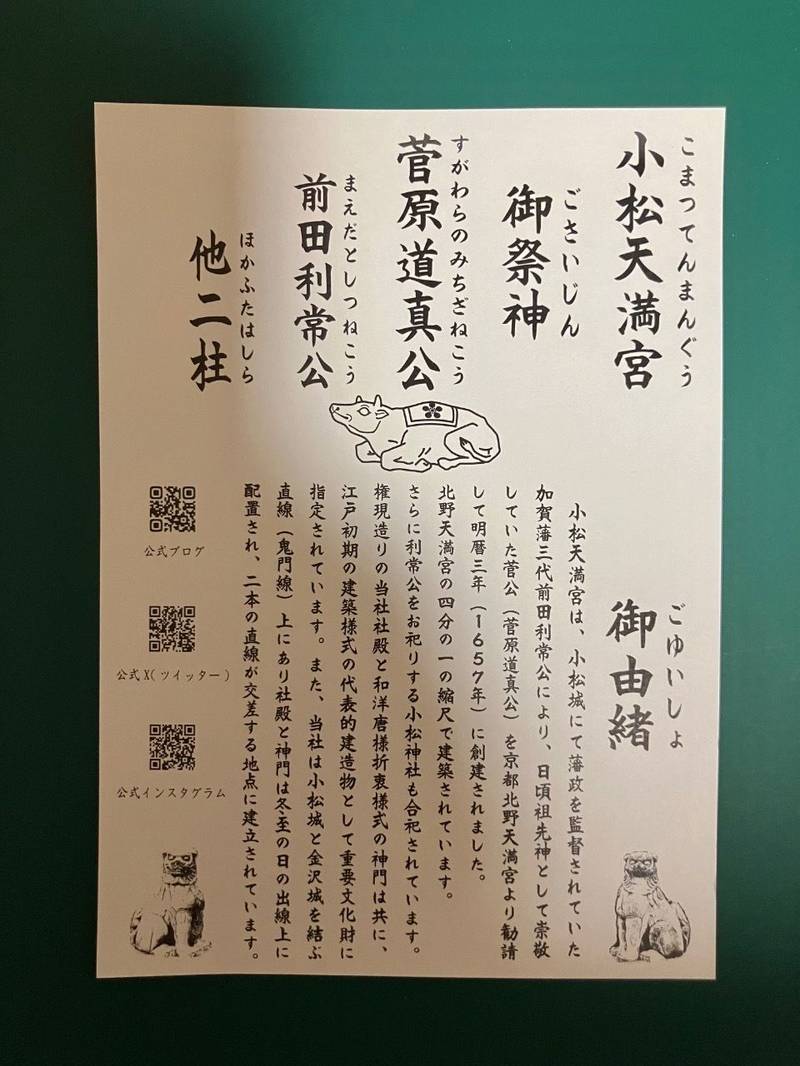 小松天満宮
こまつてんまんぐう
御祭神
ごさいじん
菅原道真公
すがわらのみちざねこう
前田利常公
まえだとしつねこう
他二柱
ほかふたはしら
御由緒
ごゆいしょ
小松天満宮は、小松城にて藩政を監督されていた
加賀藩三代前田利常公により、日頃祖先神として崇敬
していた菅公（菅原道真公）を京都北野天満宮より勧請
して明暦三年（1657年）に創建されました。
北野天満宮の四分の一の縮尺で建築されています。
さらに利常公をお祀りする小松神社も合祀されています。
権現造りの当社社殿と和洋唐様折衷様式の神門は共に、
江戸初期の建築様式の代表的建造物として重要文化財に
指定されています。また、当社は小松城と金沢城を結ぶ
直線（鬼門線）上にあり社殿と神門は冬至の日の出線上に
配置され、二本の直線が交差する地点に建立されています。
公式ブログ
公式X(ツイッター)
公式インスタグラム